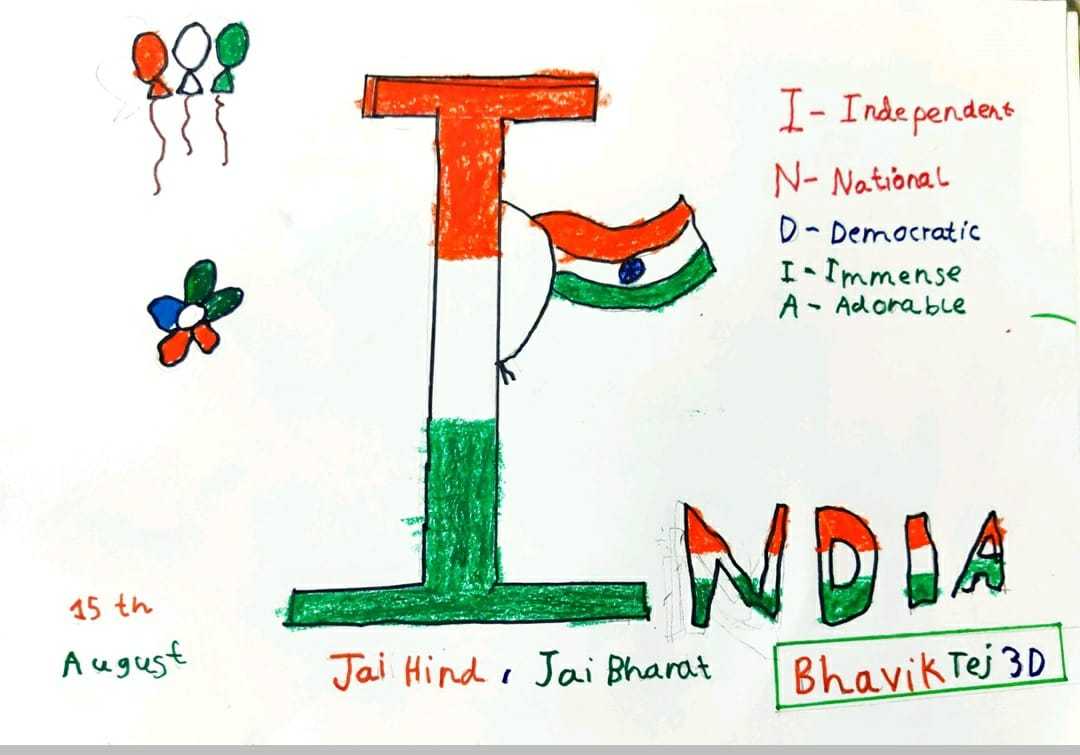 I - Independent
N- National
D - Democratic
I - Immense
A - Adorable
INDIA
15 th
August
Jai Hind, Jai Bharat
Bhavik Tej 3D